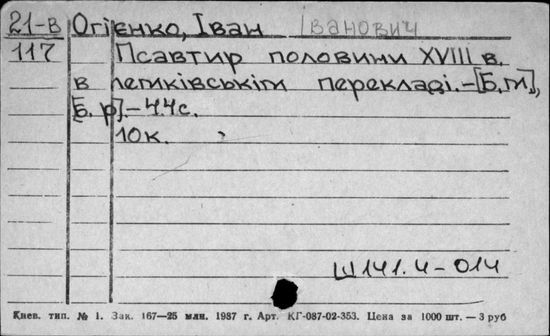 21-В Огієнко, Іван Іванович
117 Псавтир половини XVIII в.
в лемківськім перекладі.-[Б.м],
[б. р].-44с.
10к.
Ш141.4-014
Киев. тип. № 1. Зак. 167—25 млн. 1987 г. Арт. КГ-087-02-353. Цена за 1000 шт. — 3 руб